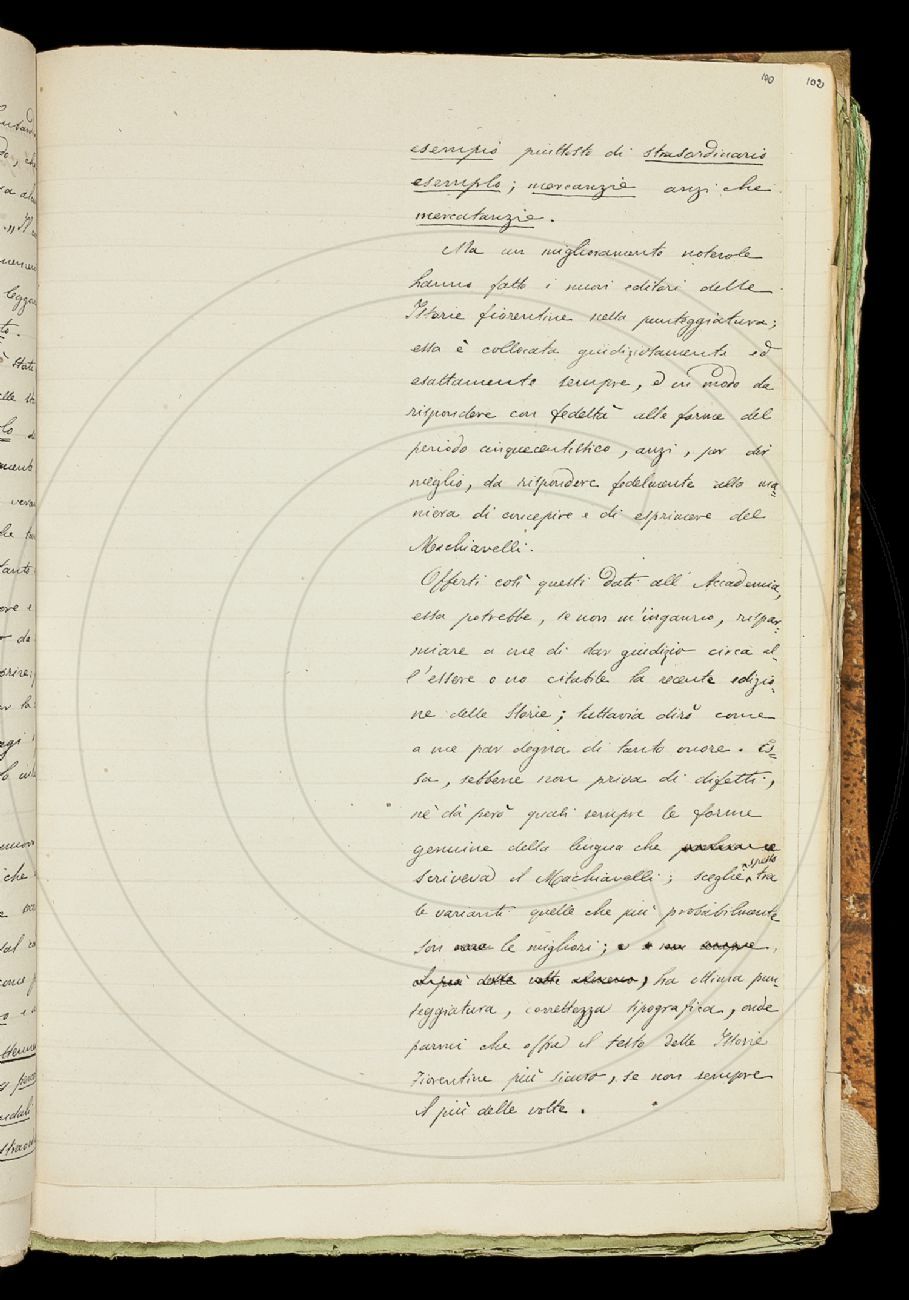 100 102
esempio piuttosto di strasordinario
esemplo; mercanzie anzi che
mercatanzie.
Ma un miglioramento notevole
hanno fatto i nuovi editori delle
Istorie fiorentine nella punteggiatura;
essa è collocata giudiziosamente ed
esattamente sempre, e in modo da
rispondere con fedeltà alle forme del
periodo cinquecentistico, anzi, per dir
meglio, da rispondere fedelmente alla ma=
niera di concepire e di esprimere del
Machiavelli.
Offerti così questi dati all'Accademia,
essa potrebbe, se non m'inganno, rispar=
miare a me di dar giudizio circa al=
l'essere o no citabile la recente edizio=
ne delle Storie; tuttavia dirò come
a me par degna di tanto onore. Es=
sa, sebbene non priva di difetti,
ne dà però quasi sempre le forme
genuine della lingua che
scriveva il Machiavelli; sceglie spesso tra
le varianti quelle che più probabilmente
son le migliori; e sempre,
il più delle volte almeno, ha ottima pun=
teggiatura, correttezza tipografica, onde
parmi che offra il testo delle Istorie
Fiorentine più sicuro, se non sempre
il più delle volte.